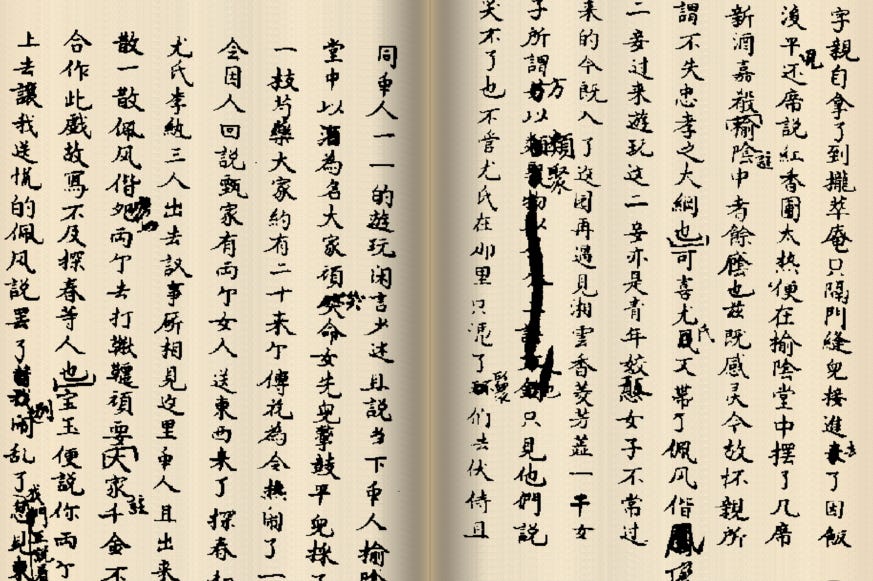 字親自拿了到攏萃庵只隔門縫兒接進去了因飯
後平兒还席說紅香圃太熱便在榆陰堂中擺了几席
新酒嘉殽榆陰中者餘廕也茲既感灵今故杯親所註
謂不失忠孝之大綱也可喜尤氏又帶了佩风偕
二妾过来遊玩这二妾亦是青年姣憨女子不常过
来的今既入了这园再遇見湘雲香菱芳蕋一干女
子所謂方以類聚只見他們說
笑不了也不管尤氏在那里只憑了们去伏侍且
同众人一一的遊玩闲言少述且說当下众人榆
堂中以酒為名大家頑笑命女先兒擊鼓平兒採了
一枝芍藥大家約有二十来个傳花為令热闹了一
会因人回說甄家有两个女人送東西来了探春
尤氏李紈三人出去議事所相見这里众人且出来
散一散佩风偕两个去打鞦韆頑耍大家千金不註
合作此戲故寫不及探春等人也宝玉便說你两个
上去讓我送慌的佩风說罢了别闹乱了